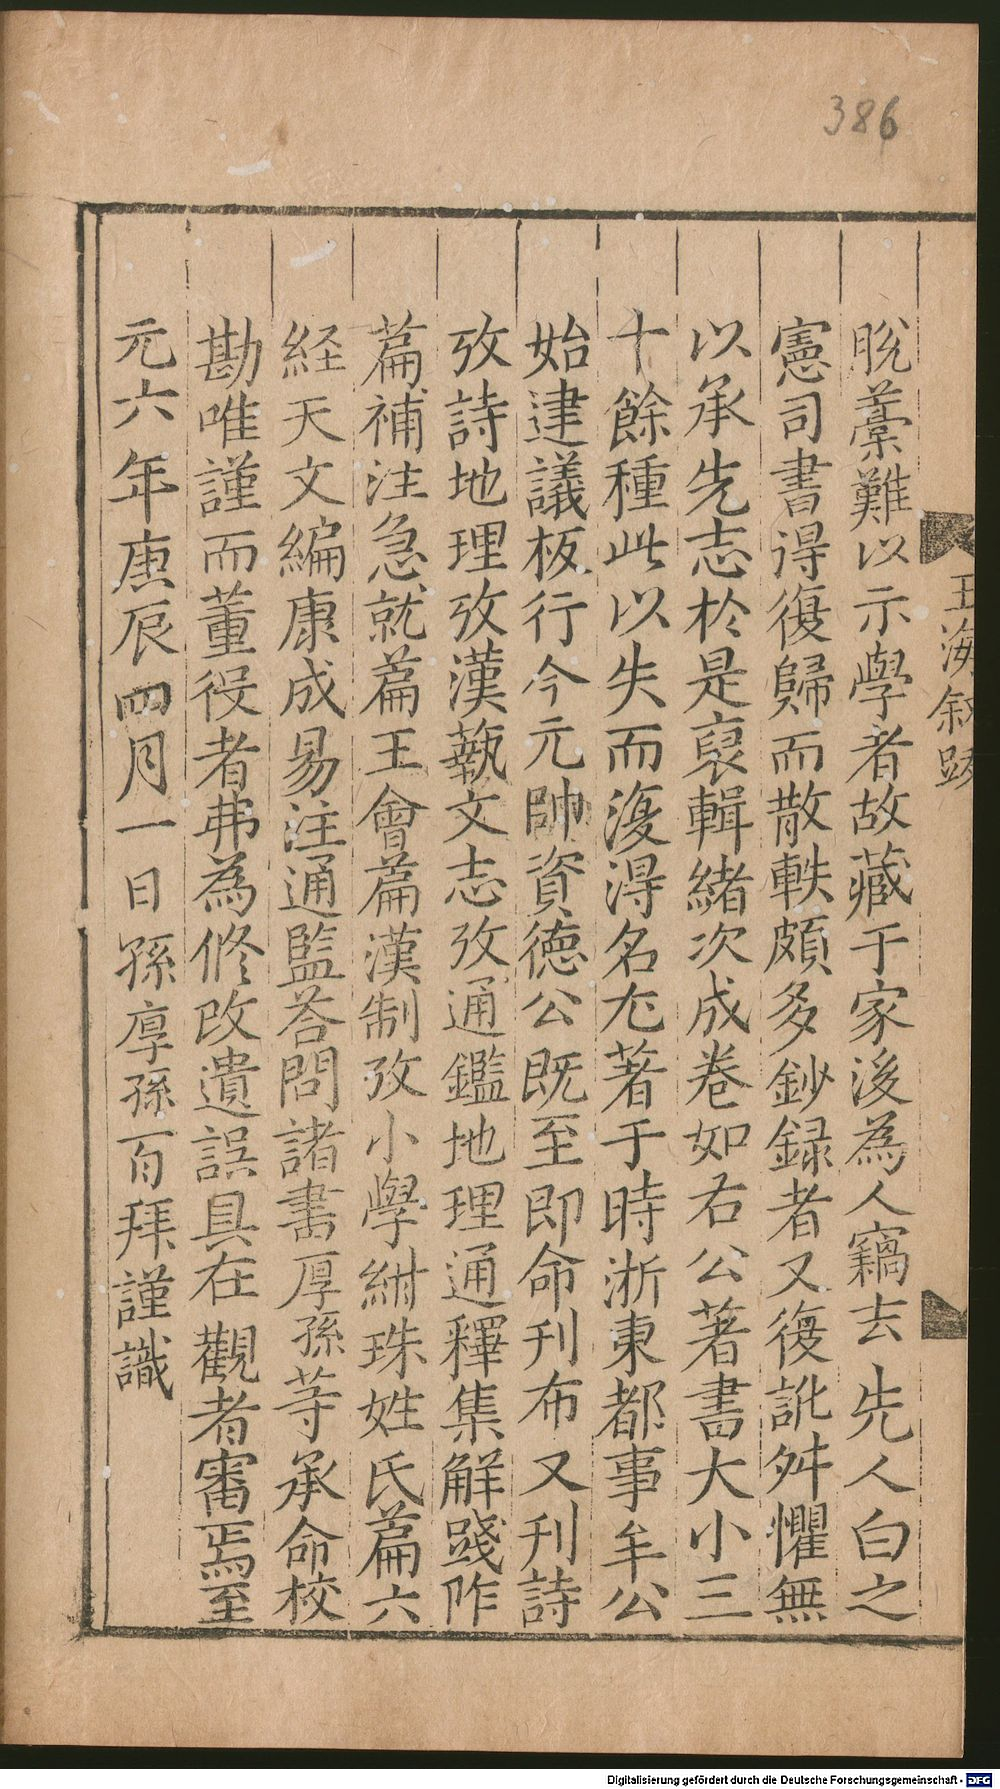 386
玉海叙跋
脫藁難以示學者故藏于家後為人竊去先人白之
憲司書得復歸而散軼頗多鈔録者又復訛舛懼無
以承先志於是裒輯緒次成卷如右公著書大小三
十餘種此以失而復得名尤著于時浙東都事牟公
始建議板行今元帥資德公既至即命刊布又刊詩
攷詩地理攷漢藝文志攷通鑑地理通釋集解踐阼
篇補注急就篇王會篇漢制攷小學紺珠姓氏篇六
経天文編康成易注通監荅問諸書厚孫等承命校
勘唯謹而董役者弗為修改遺誤具在觀者審焉至
元六年庚辰四月一日孫厚孫百拜謹識
Digitalisierung gefördert durch die Deutsche Forschungsgemeinschaft - DFG